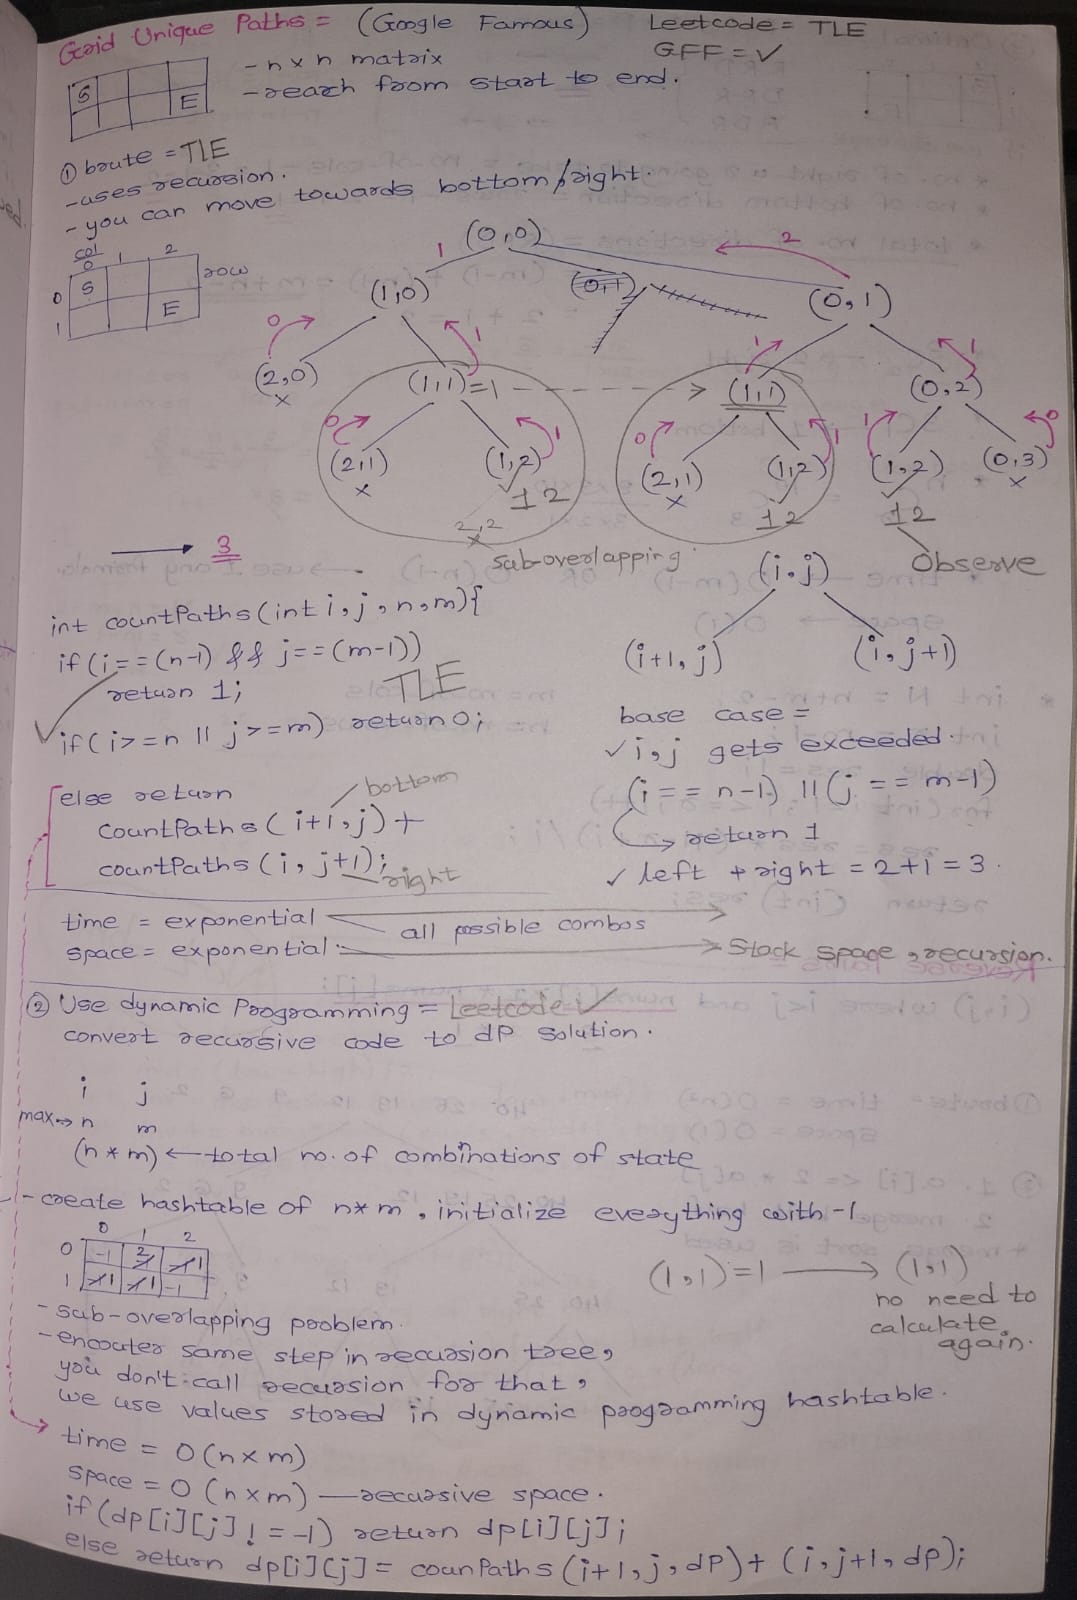 Grid Unique Paths = (Google Famous) Leetcode = TLE
GFF = ✓
- n x n matrix
- reach from start to end.
S
E
① brute = TLE
- uses recursion.
- you can move towards bottom/right.
col
0 1 2
row
0 S
1 E
(0,0)
1 2
(1,0) (0,1) (0,1)
0 1 1 1
(2,0) (1,1)=1 (1,1) (0,2)
x
0 1 0 1 1 0
(2,1) (1,2) (2,1) (1,2) (1,2) (0,3)
x ✓ x ✓ ✓ x
1 2 1 2 1 2
2,2
x
→ 3
sub-overlapping
Observe
int countPaths(int i, j, n, m){
if (i==(n-1) && j==(m-1))
return 1;
TLE
if (i>=n || j>=m) return 0;
else return
bottom
countPaths(i+1,j)+
countPaths(i, j+1);
right
(i,j)
(i+1,j) (i,j+1)
base case =
✓ i,j gets exceeded.
(i == n-1) || (j == m-1)
return 1
✓ left + right = 2+1 = 3.
time = exponential
all possible combos
space = exponential
Stack space, recursion.
② Use dynamic Programming = Leetcode ✓
convert recursive code to dP solution.
i j
max→ n m
(n * m) ← total no. of combinations of state
- create hashtable of n*m, initialize everything with -1
0 1 2
0 -1 2 -1 1
1 -1 1 -1 1 -1
(1,1)=1 → (1,1)
no need to
calculate
again.
- sub-overlapping problem.
- encouter same step in recursion tree,
you don't call recursion for that,
we use values stored in dynamic programming hashtable.
time = O(n x m)
space = O(n x m) — recursive space.
if (dp[i][j] != -1) return dp[i][j];
else return dp[i][j] = counPaths(i+1,j,dP) + (i,j+1,dp);